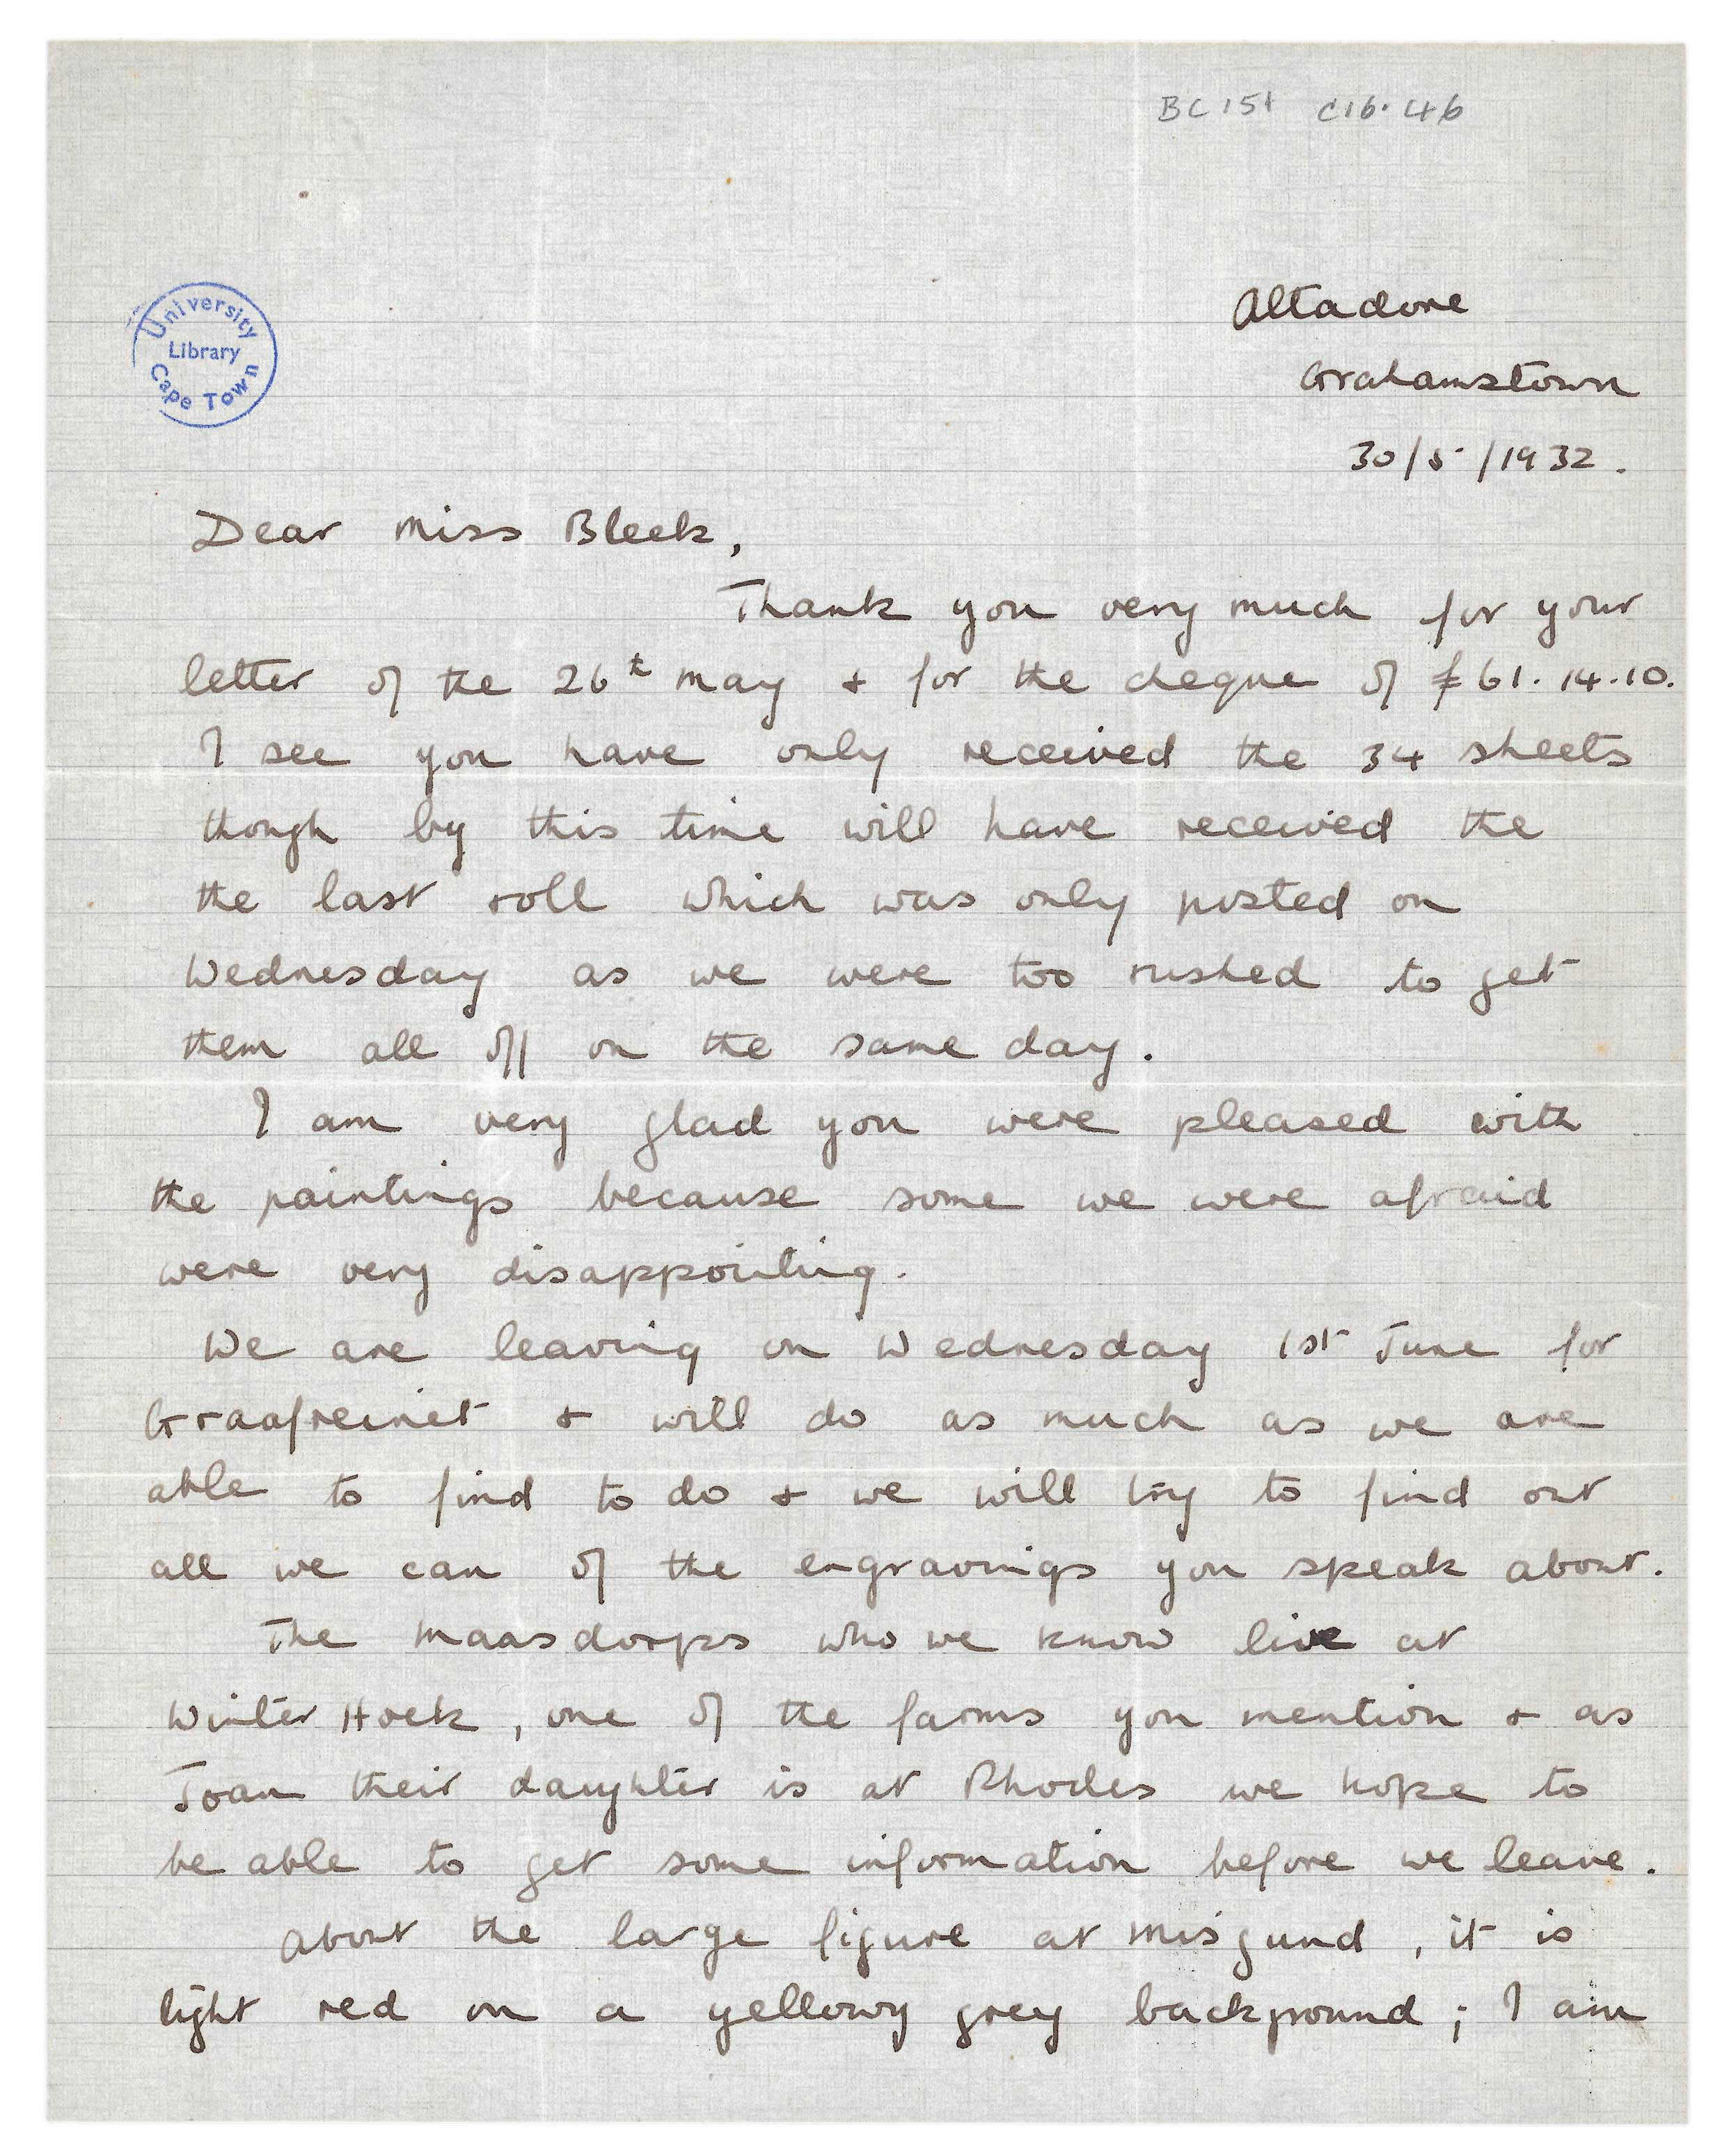 BC 151 C16.46
University
Library
Cape Town
Altadore
Grahamstown
30/5/1932.
Dear Miss Bleek,
Thank you very much for your
letter of the 26th May & for the cheque of £61.14.10.
I see you have only received the 34 sheets
though by this time will have received the
the last roll which was only posted on
Wednesday as we were too rushed to get
them all off on the same day.
I am very glad you were pleased with
the paintings because some we were afraid
were very disappointing.
We are leaving on Wednesday 1st June for
Graafreinet & will do as much as we are
able to find to do & we will try to find out
all we can of the engravings you speak about.
The Maasdorps who we know live at
Winter Hoek, one of the farms you mention & as
Joan their daughter is at Rhodes we hope to
be able to get some information before we leave.
About the large figure at Misgund, it is
light red on a yellowy grey background; I am